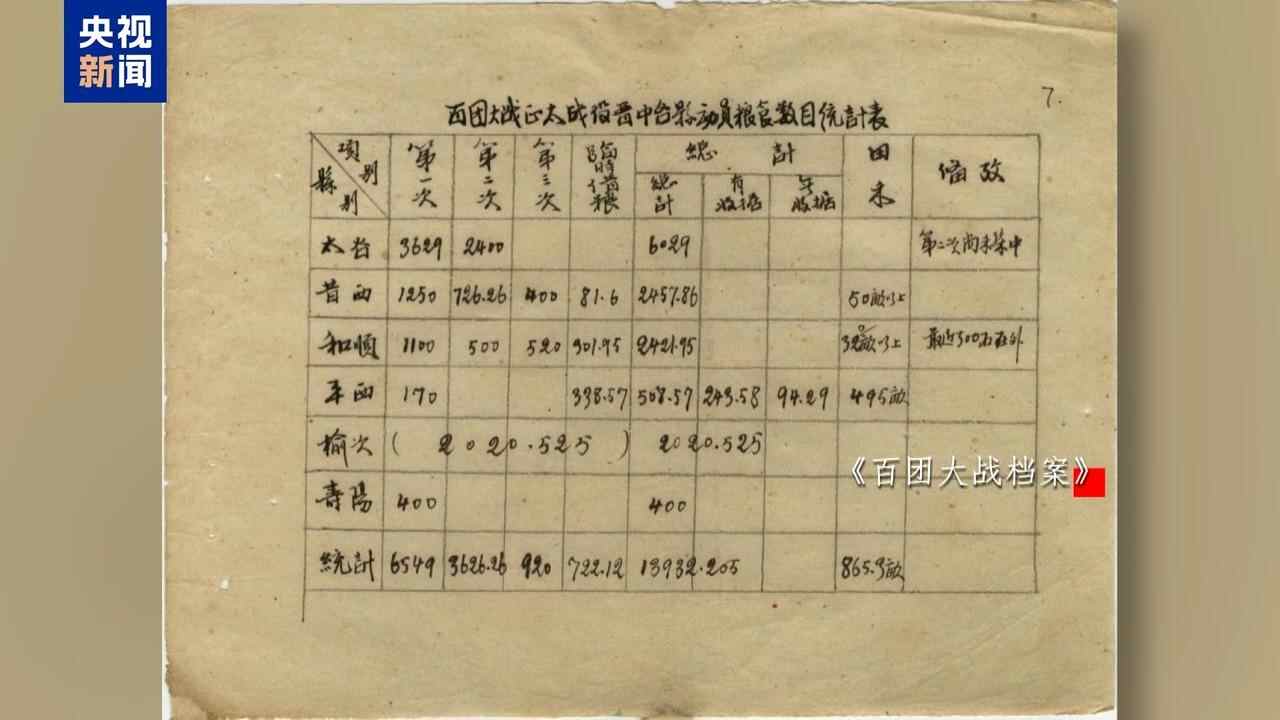 央视
新闻
7.
百团大战正太战役晋中各县动员粮食数目统計表
項别 縣别 第一次 第二次 第三次 臨時借粮 總計 田禾 俻攷
總計 有收据 無收据
太谷 3629 2400 6029 第二次尚未集中
昔西 1250 726.26 400 81.6 2457.86 50畝以上
和順 1100 500 520 301.95 2421.95 320畝以上 最近500石在外
平西 170 338.57 508.57 243.58 94.29 495畝
榆次 ( 2020.525 ) 2020.525
壽陽 400 400
統計 6549 3626.26 920 722.12 13932.205 865.3畝
《百团大战档案》